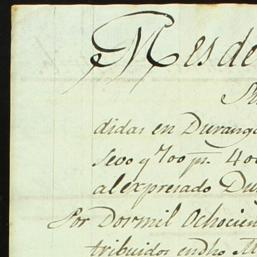 Mes de
didas en Durang
al expresado Du
Por Dos mil Ochocien
tribuidos en dho M